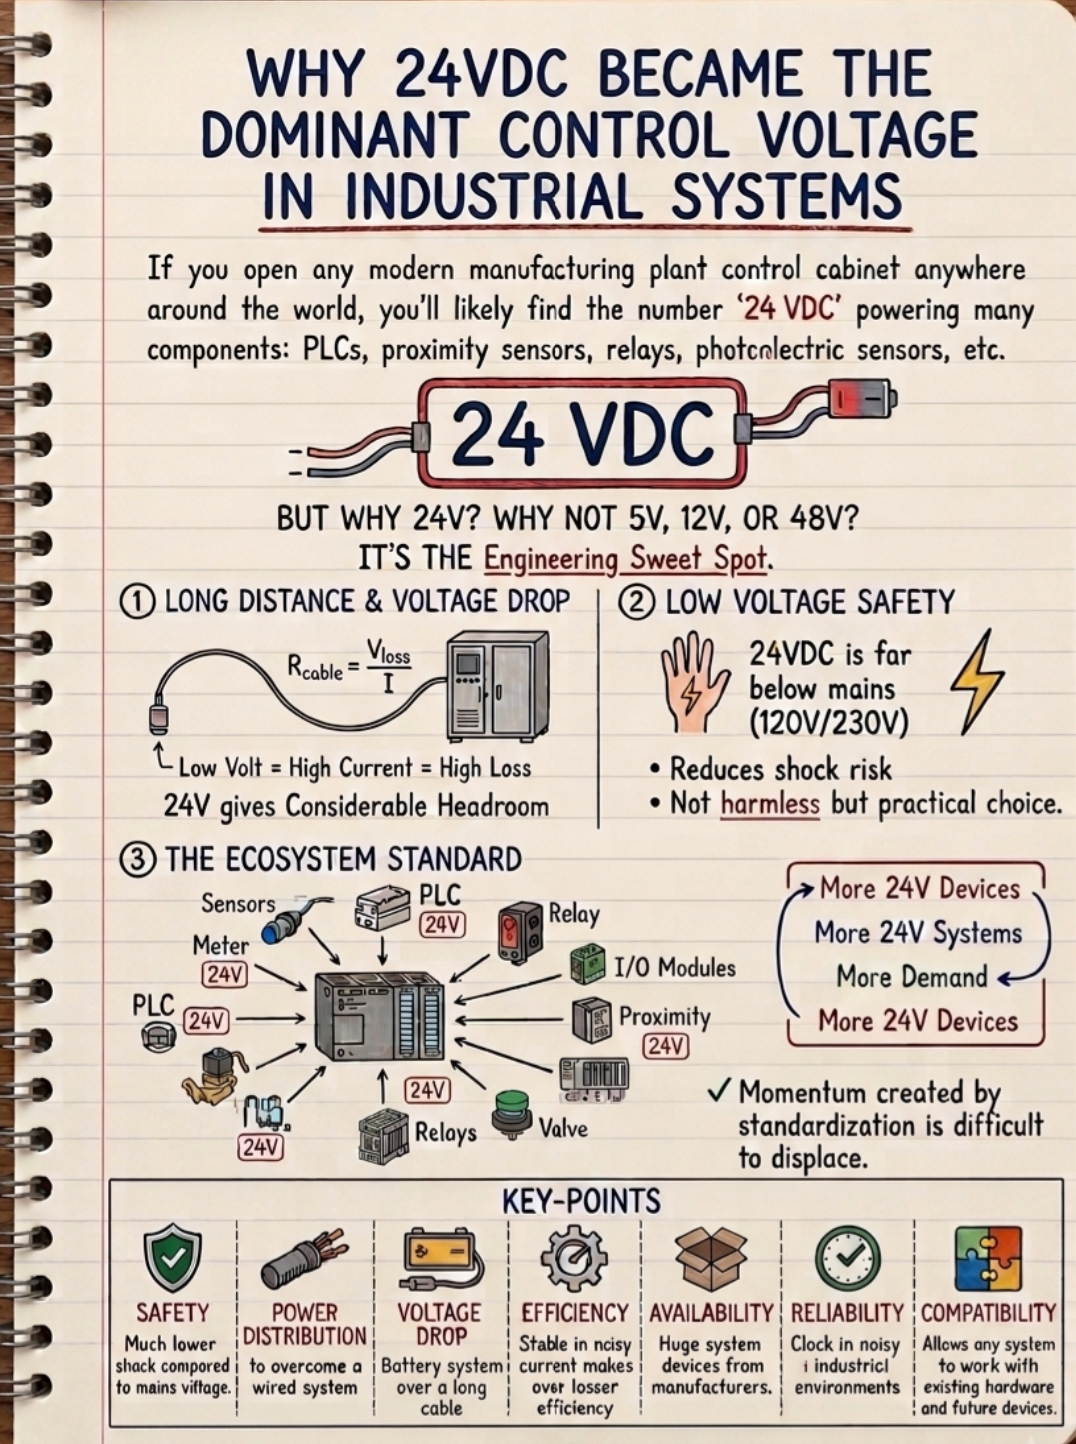 WHY 24VDC BECAME THE
DOMINANT CONTROL VOLTAGE
IN INDUSTRIAL SYSTEMS
If you open any modern manufacturing plant control cabinet anywhere
around the world, you'll likely find the number '24 VDC' powering many
components: PLCs, proximity sensors, relays, photcalectric sensors, etc.
24 VDC
BUT WHY 24V? WHY NOT 5V, 12V, OR 48V?
IT'S THE Engineering Sweet Spot.
① LONG DISTANCE & VOLTAGE DROP
Rcable = Vloss / I
Low Volt = High Current = High Loss
24V gives Considerable Headroom
② LOW VOLTAGE SAFETY
24VDC is far
below mains
(120V/230V)
• Reduces shock risk
• Not harmless but practical choice.
③ THE ECOSYSTEM STANDARD
Sensors
PLC
24V
Relay
Meter
24V
I/O Modules
PLC
24V
Proximity
24V
24V
24V
Relays
Valve
More 24V Devices
More 24V Systems
More Demand
More 24V Devices
✓ Momentum created by
standardization is difficult
to displace.
KEY-POINTS
SAFETY
Much lower
shack compored
to mains viftage.
POWER
DISTRIBUTION
to overcome a
wired system
VOLTAGE
DROP
Battery system
over a long
cable
EFFICIENCY
Stable in noisy
current makes
over losser
efficiency
AVAILABILITY
Huge system
devices from
manufacturers.
RELIABILITY
Clock in noisy
industricl
environments
COMPATIBILITY
Allows any system
to work with
existing hardware
and future devices.